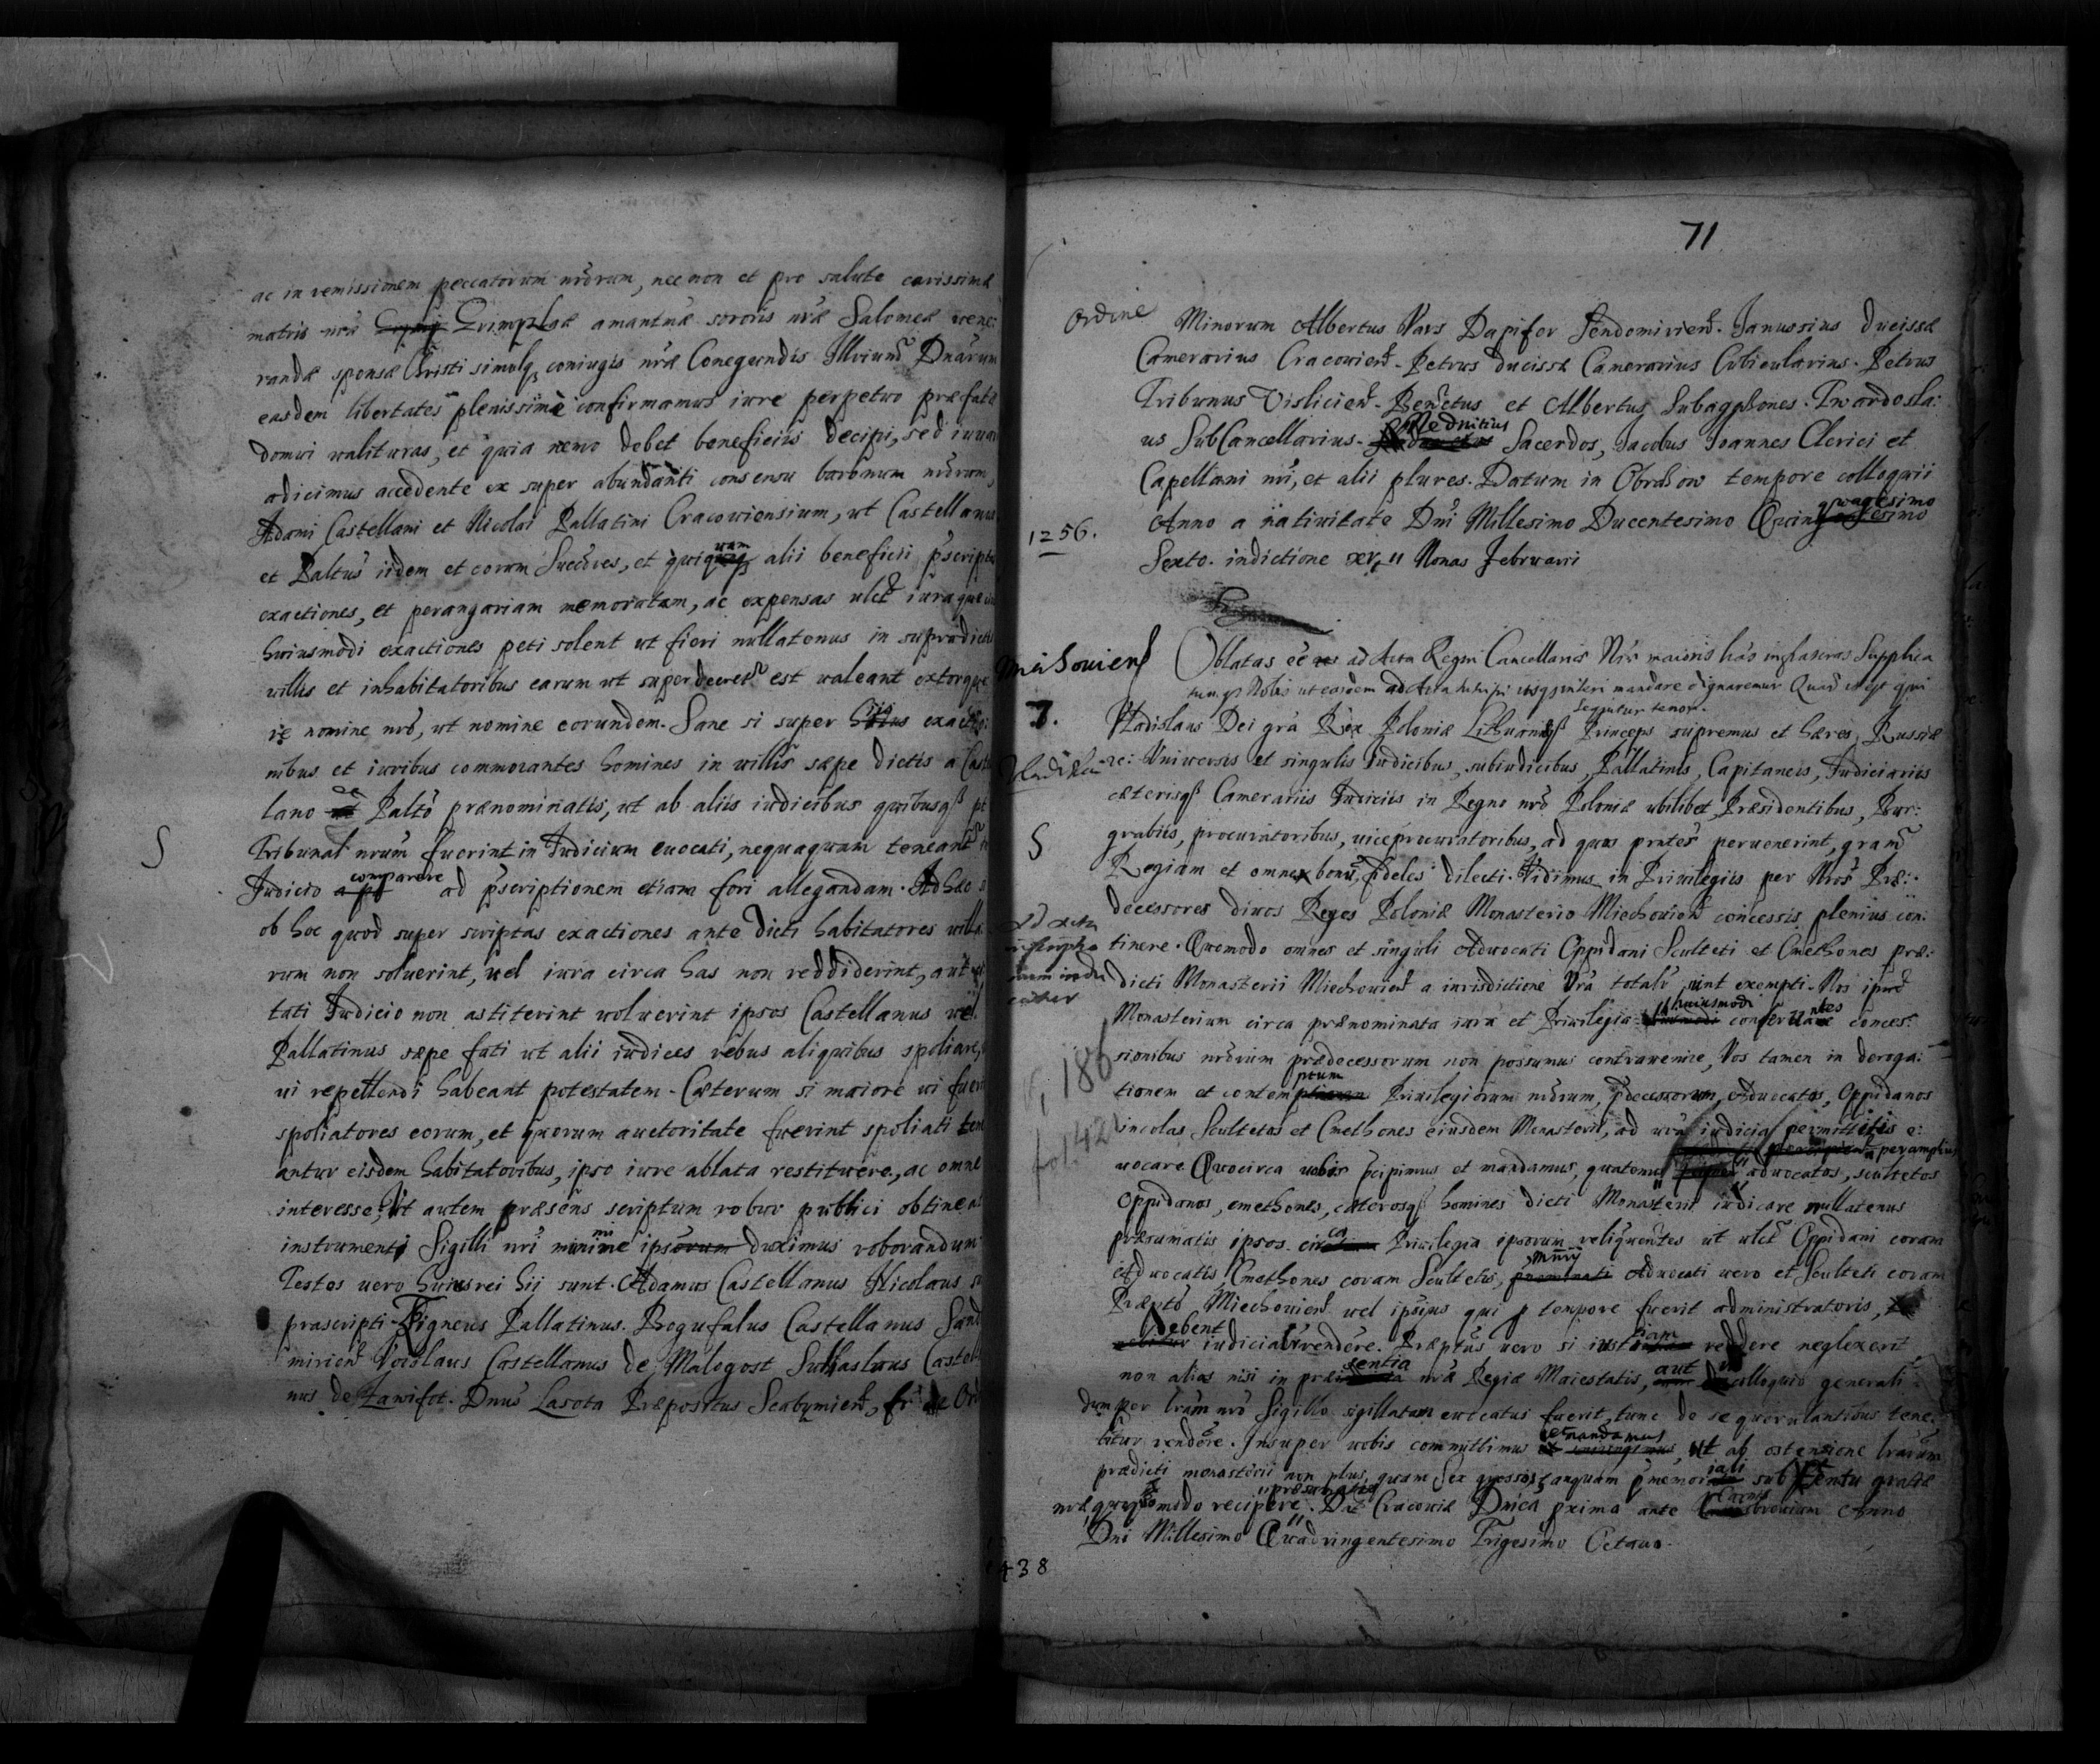 ac in remissionem peccatorum nrõrum, nec non et pro salute carissimæ
matris nrã Grimplæ amantnæ sororis nræ Salomeæ vene:
randæ sponsæ Christi simulq coniugis nræ Conegundis Illriund Dnãrum
easdem libertates plenissimè confirmamus iure perpetuo præfatæ
domui valituras, et quia nemo debet beneficiis decipi, sed iuuari
adicimus accedente ex super abundanti consensu baronum nrõrum,
Adami Castellani et Nicolai Pallatini Cracouiensium, ut Castellanus
et Paltus iidem et eorum Succũres, et quiquam alii beneficii pscriptas
exactiones, et perangariam memoratam, ac expensas ulet iura quæ in
huiusmodi exactiones peti solent ut fieri nullatenus in supradictis
villis et inhabitatoribus earum ut super decret est valeant extorque
re nomine nrõ, ut nomine eorundem. Sane si super hiis exactio
nibus et iuribus commorantes homines in villis sæpe dictis a Castel
lano ac Paltõ prænominatis, ut ab aliis iudicibus quibusq
Tribunal nrum fuerint in Iudicium euocati, nequaquam teneant
S
Iudicio comparere ad pscriptionem etiam fori allegandam. Ad hæc
ob hoc quod super scriptas exactiones ante dicti habitatores villa
rum non soluerint, uel iura circa has non reddiderint, aut
tati Iudicio non astiterint uoluerint ipsos Castellanus uel
Pallatinus sæpe fati ut alii iudices rebus aliquibus spoliare,
ui repellendi habeant potestatem. Cæterum si maiore ui fuerint
spoliatores eorum, et quorum auctoritate fuerint spoliati ten
antur eisdem habitatoribus, ipso iure ablata restituere, ac omne
interesse. Ut autem præsens scriptum robur publici obtineat
instrumenti Sigilli nri munimine ipsorum duximus roborandum
Testes uero huius rei hii sunt. Adamus Castellanus Nicolaus
prascripti Figneus Pallatinus. Bogufalus Castellanus Sand
mirien Voislaus Castellanus de Malogost Sulaslaus Castella
nus de Zawifot. Dnus Lasota Præpositus Scabymien, fr de Ord
71
Ordine
Minorum Albertus Vars Dapifer Sendomirien. Ianussius ducissæ
Camerarius Cracouien. Petrus ducissæ Camerarius Cubicularius. Petrus
Tribunus Vislicien. Benetus et Albertus Subagphones. Twardosla:
us SubCancellarius. Mednitius Sacerdos, Iacobus Ioannes Clerici et
Capellani nri, et alii plures. Datum in Obrahow tempore colloquii
1256.
Anno a natiuitate Dni Millesimo Ducentesimo Quinquagesimo
Sexto. indictione xv, 11 Nonas Februarii
Miechouien
Oblatas ee ad Acta Regni Cancellariæ Nræ maioris has infrascras Supplica
tumq Nobis ut easdem ad Acta suscipi mandare dignaremur
sequitur tenor.
7.
Vladislaus Dei gra Rex Poloniæ Lithuaniæq Princeps supremus et hæres Russiæ
Vladislai
rc: Vniuersis et singulis Iudicibus, subiudicibus, Pallatinis, Capitaneis, Iudiciariis
cæterisq Camerariis Iudiciis in Regno nrõ Poloniæ ubilibet Præsidentibus, Bur:
S
grabiis, procuratoribus, uiceprocuratoribus, ad quos pntes peruenerint, gram
Regiam et omne bonũ, fideles dilecti. Vidimus in Priuilegiis per Nros Præ:
decessores diuos Reges Poloniæ Monasterio Miechouien concessis plenius con:
Ad acta
tinere. Quomodo omnes et singuli Aduocati Oppidani Sculteti et Cmethones præ:
dicti Monasterii Miechouien a iurisdictione Vrã totalr sunt exempti. Nos ipm
Monasterium circa prænominata iura et Priuilegia huiusmodi conseruantes conces:
sionibus nrõrum prædecessorum non possumus contrauenire, Vos tamen in deroga:
186
tionem et contemptum Priuilegiorum nrõrum, pdecessorum, Aduocatos, Oppidanos
fol. 42
incolas Scultetos et Cmethones eiusdem Monasterii, ad ura iudicia permittitis e:
uocare. Quocirca uobis pcipimus et mandamus, quatenus peramplius aduocatos, scultetos
Oppidanos, cmethones, cæterosq homines dicti Monasterii iudicare nullatenus
præsumatis ipsos circa Priuilegia ipsorum relinquentes ut ulet Oppidani coram
Aduocatis, Cmethones coram Scultetis, Aduocati uero et Sculteti coram
Præptõ Miechouien uel ipsius qui p tempore fuerit administratoris,
debent iudicialr rendere. Præptus uero si iustitiam reddere neglexerit
non alias nisi in præsentia nræ Regiæ Maiestatis, aut in colloquio generali
dum per lram nrõ Sigillo sigillatam euocatus fuerit, tunc de se querulantibus tene:
bitur rendere. Insuper uobis committimus et mandamus, ut ab ostensione lrarum
prædicti monasterii non plus, quam Sex grossos, tanquam p memoriali sub obtentu gratiæ
nræ, quoquomodo recipere præsumatis. Dat Cracouiæ Dnica pxima ante Carnisbreuium Anno
Dni Millesimo Quadringentesimo Trigesimo Octauo.
1438